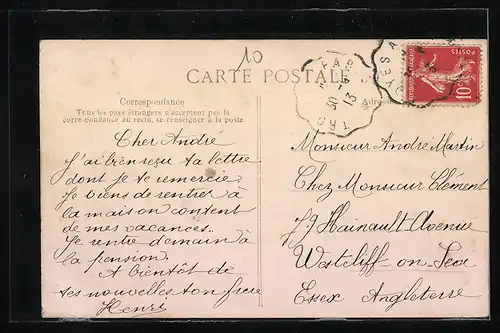 10
CARTE POSTALE
Correspondance
Tous les pays étrangers n'acceptent pas la
correspondance au recto, se renseigner à la poste
Adresse
Cher André
J'ai bien reçu ta lettre
dont je te remercie.
Je viens de rentrer à
la maison content
de mes vacances.
Je rentre demain à
la pension.
A bientôt de
tes nouvelles ton frère
Henri
Monsieur André Martin
Chez Monsieur Clément
Hainault-Avenue
Westcliff-on-Sea
Essex Angleterre
POSTES
10